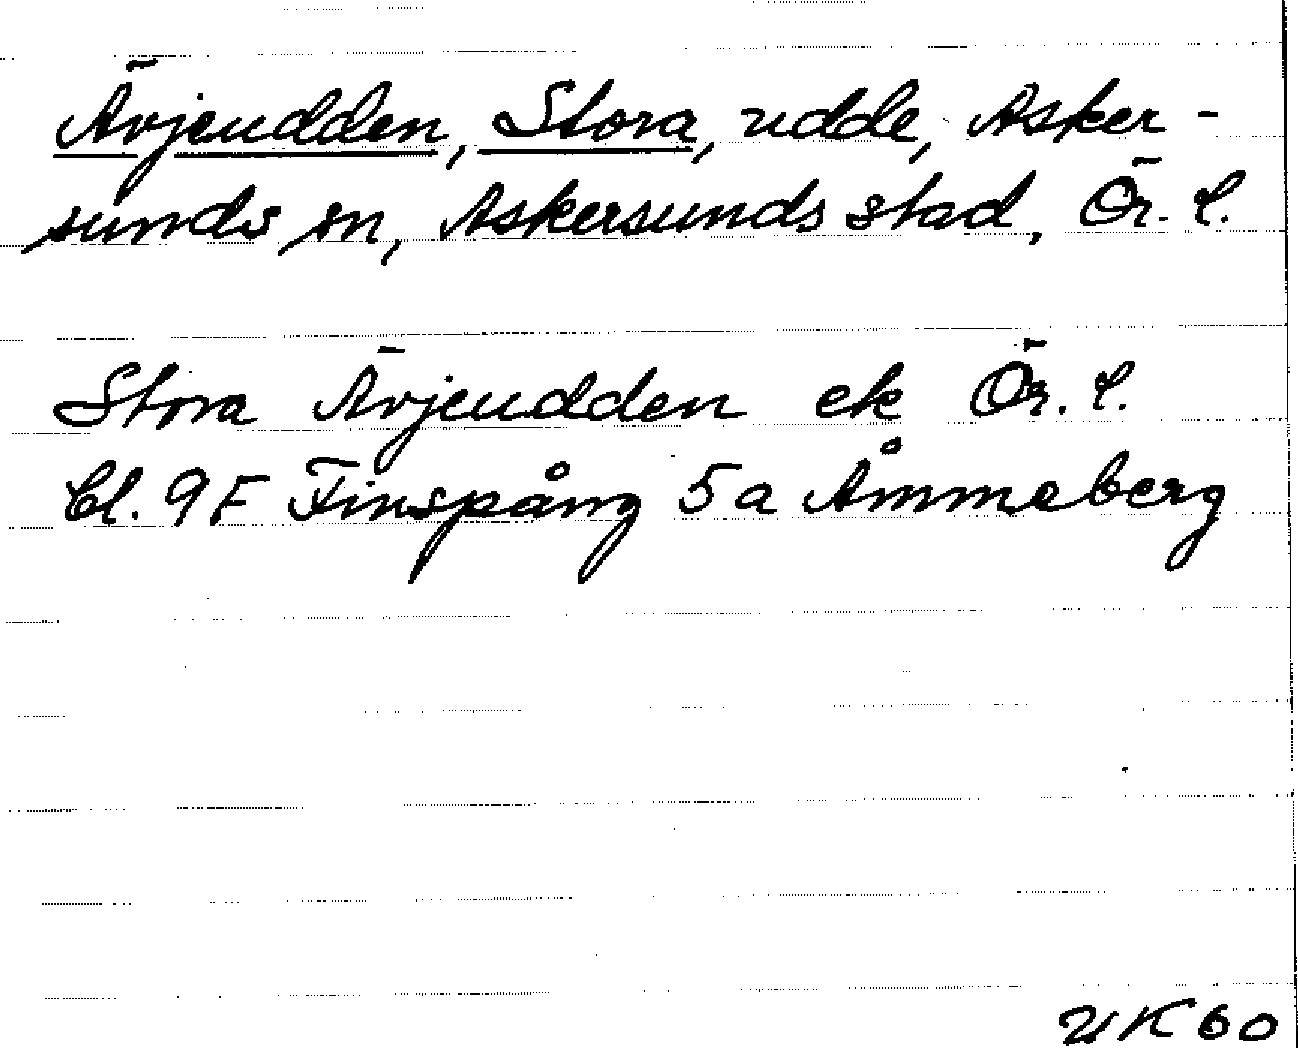 Ärjeudden, Stora, udde, Asker-
sunds sn, Askersunds stad, Ör. l.
Stora Ärjeudden ek Ör. l.
bl. 9F Finspång 5a Åmmeberg
UK 60